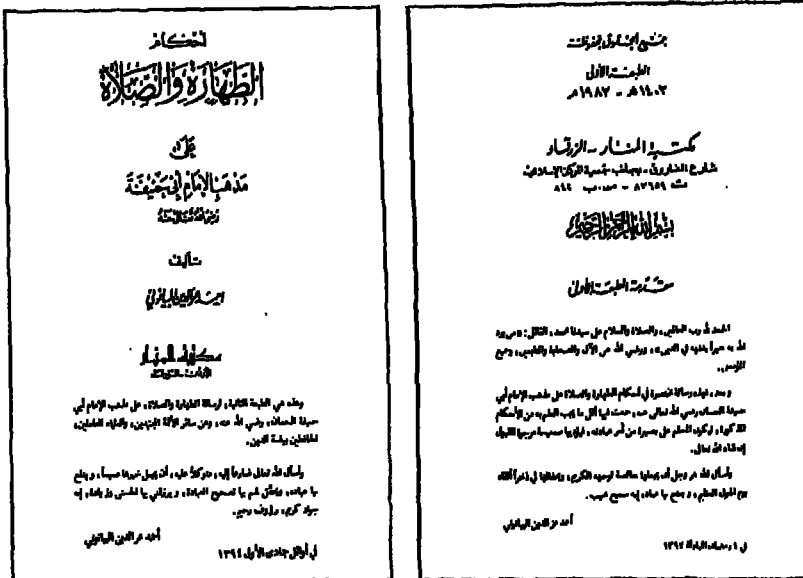 جميع الحقوق محفوظة
الطبعة الأولى
١٤٠٢هـ - ١٩٨٢م
مكتبة المنار - الزرقاء
شارع الفاروق - بجانب جمعية المركز الإسلامي
ت ٨٢٦٥٩ - ص.ب ٨٤٤
بسم الله الرحمن الرحيم
مقدمة الطبعة الأولى
الحمد لله رب العالمين، والصلاة والسلام على سيدنا محمد، القائل: «من يرد
الله به خيراً يفقهه في الدين»، ورضي الله عن الآل والصحابة والتابعين، وجميع
المؤمنين.
وبعد، فهذه رسالة مختصرة في أحكام الطهارة والصلاة على مذهب الإمام أبي
حنيفة النعمان رضي الله تعالى عنه، جمعت فيها أقل ما يجب العلم به من الأحكام
المذكورة، ليكون المسلم على بصيرة من أمر عبادته، فيؤديها صحيحة مرجوة القبول
إن شاء الله تعالى.
وأسأل الله عز وجل أن يجعلها خالصة لوجهه الكريم، وذخراً ألقاه
يوم الهول العظيم، وينفع بها عباده إنه سميع مجيب.
أحمد عز الدين البيانوني
في ١ رمضان المبارك ١٣٩٢
أحكام
الطهارة والصلاة
على
مذهب الإمام أبي حنيفة
رحمه الله تعالى
تأليف
أحمد عز الدين البيانوني
مكتبة المنار
الأردن - الزرقاء
وهذه هي الطبعة الثانية، لرسالة الطهارة والصلاة، على مذهب الإمام أبي
حنيفة النعمان، رضي الله عنه، وعن سائر الأئمة المجتهدين، والعلماء العاملين،
وأسأل الله تعالى ضارعاً إليه، متوكلاً عليه، أن يجعل خيرها عميماً، وينفع
بها عباده، ويحقق لهم بها تصحيح العبادة، ويرزقني بها الحسنى وزيادة، إنه
جواد كريم، ورؤوف رحيم.
أحمد عز الدين البيانوني
في أوائل جمادى الأولى ١٣٩٤